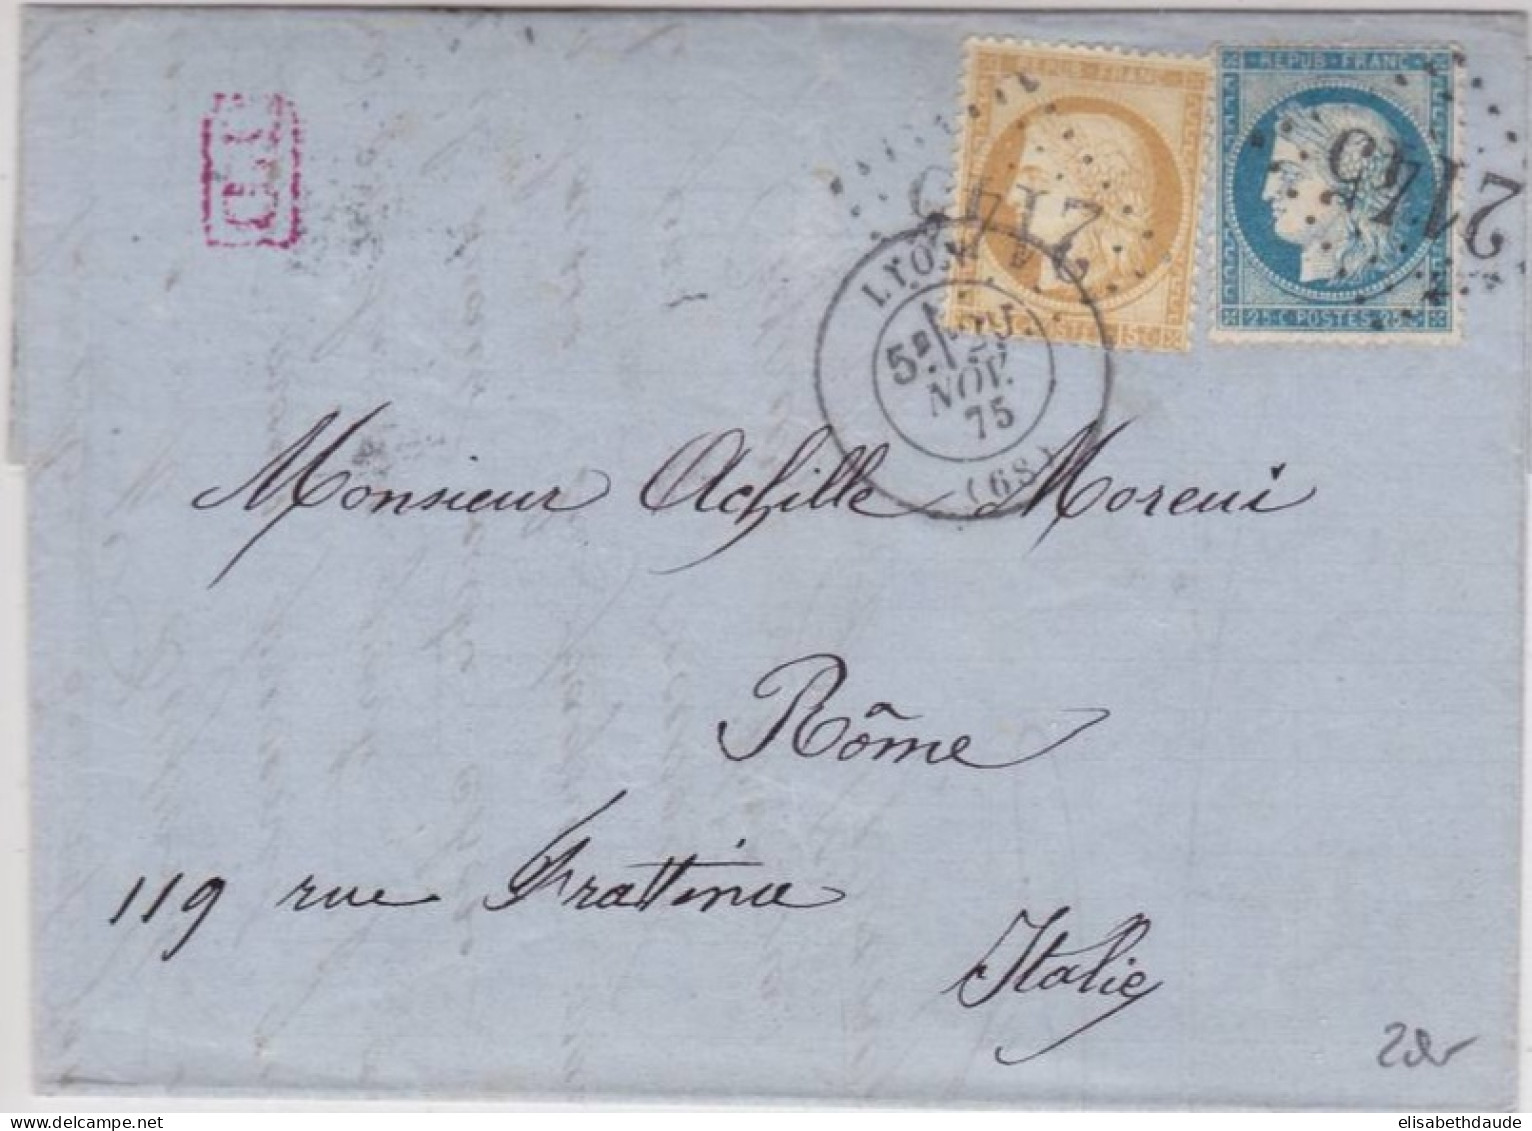 P.D.
REPUB · FRANC
REPUB · FRANC
2145
2145
POSTES 15 C
25 C POSTES 25 C
LYON
5E 25
NOV.
75
(68)
Monsieur Achille Moreui
Rôme
119 rue Frattina
Italie
elisabethdaude